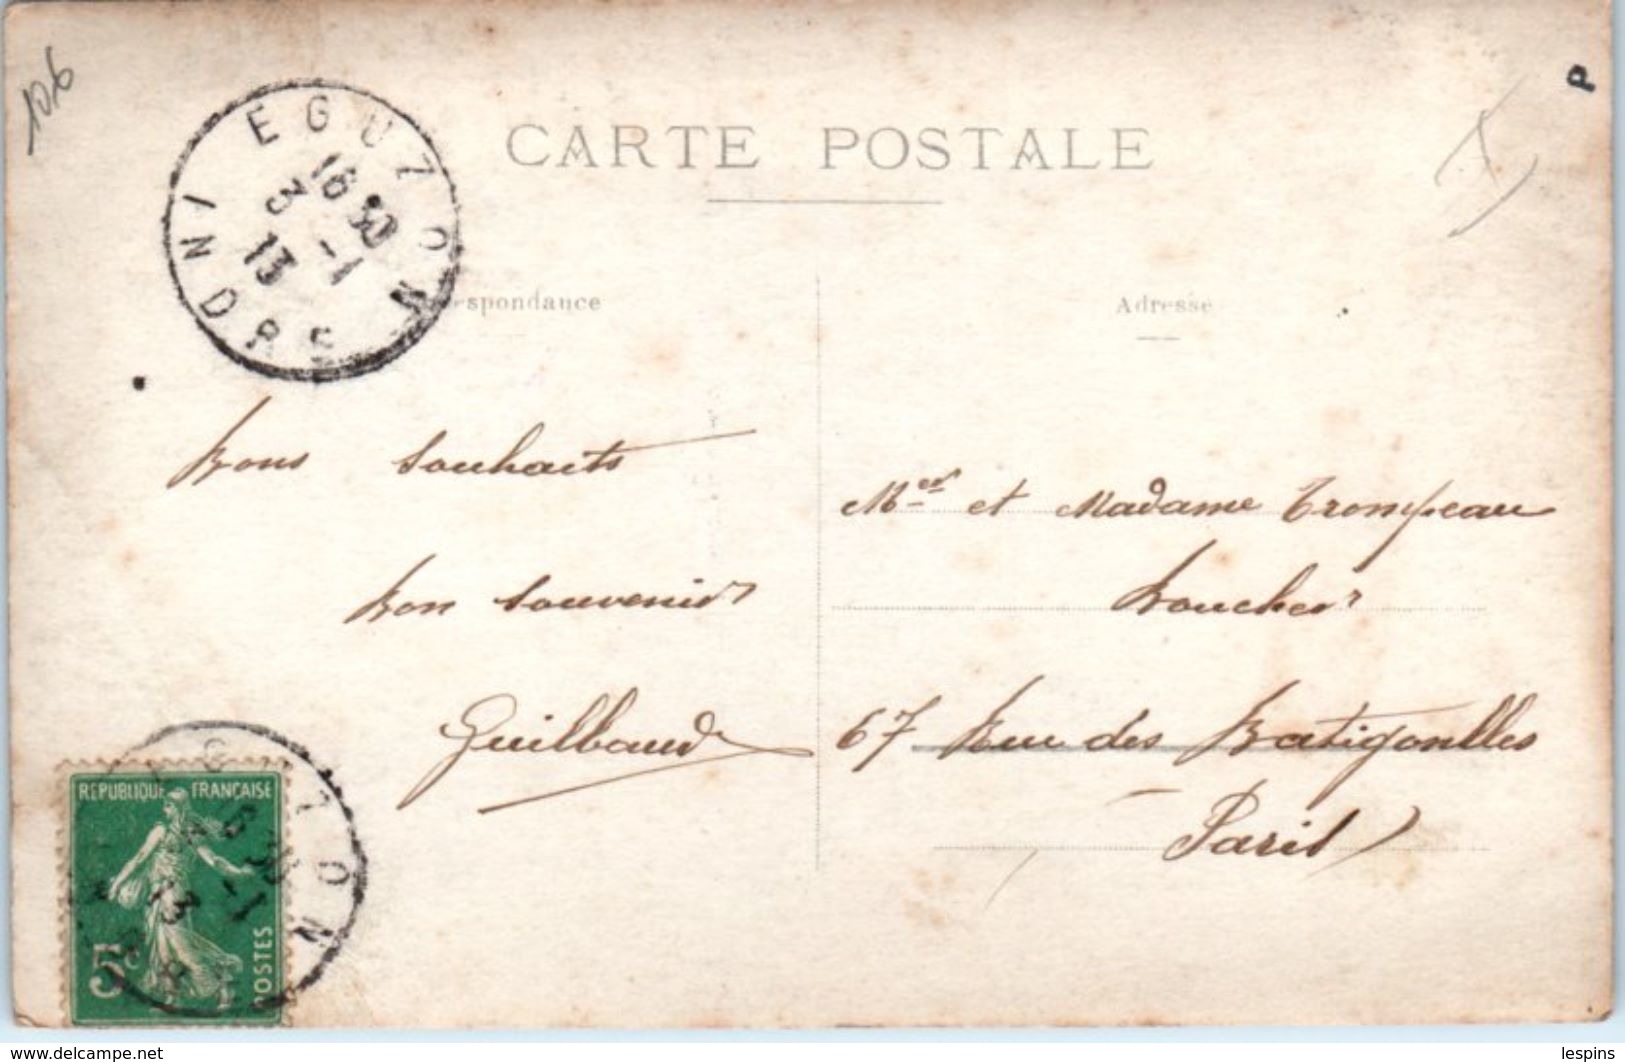 106
P
EGUZON
16 30
3 -1
13
INDRE
CARTE POSTALE
Correspondance
Adresse
Bons Souhaits
Bon Souvenir
Guilbaud
Mer et Madame Trompeau
Boucher
67 Rue des Batignolles
Paris
REPUBLIQUE FRANÇAISE
5c
POSTES
www.delcampe.net
lespins